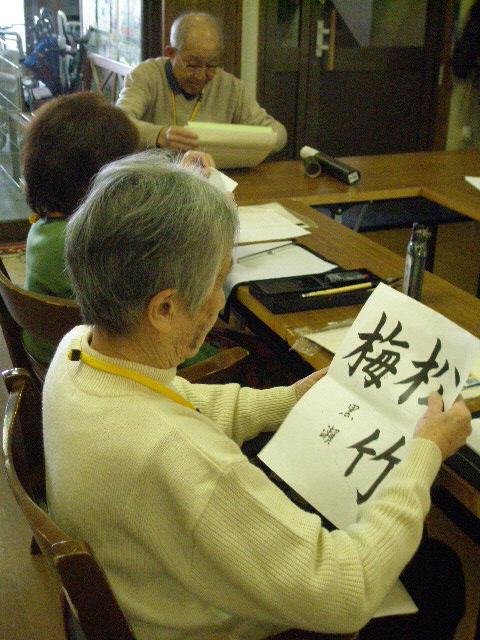 松竹
梅
黒瀬